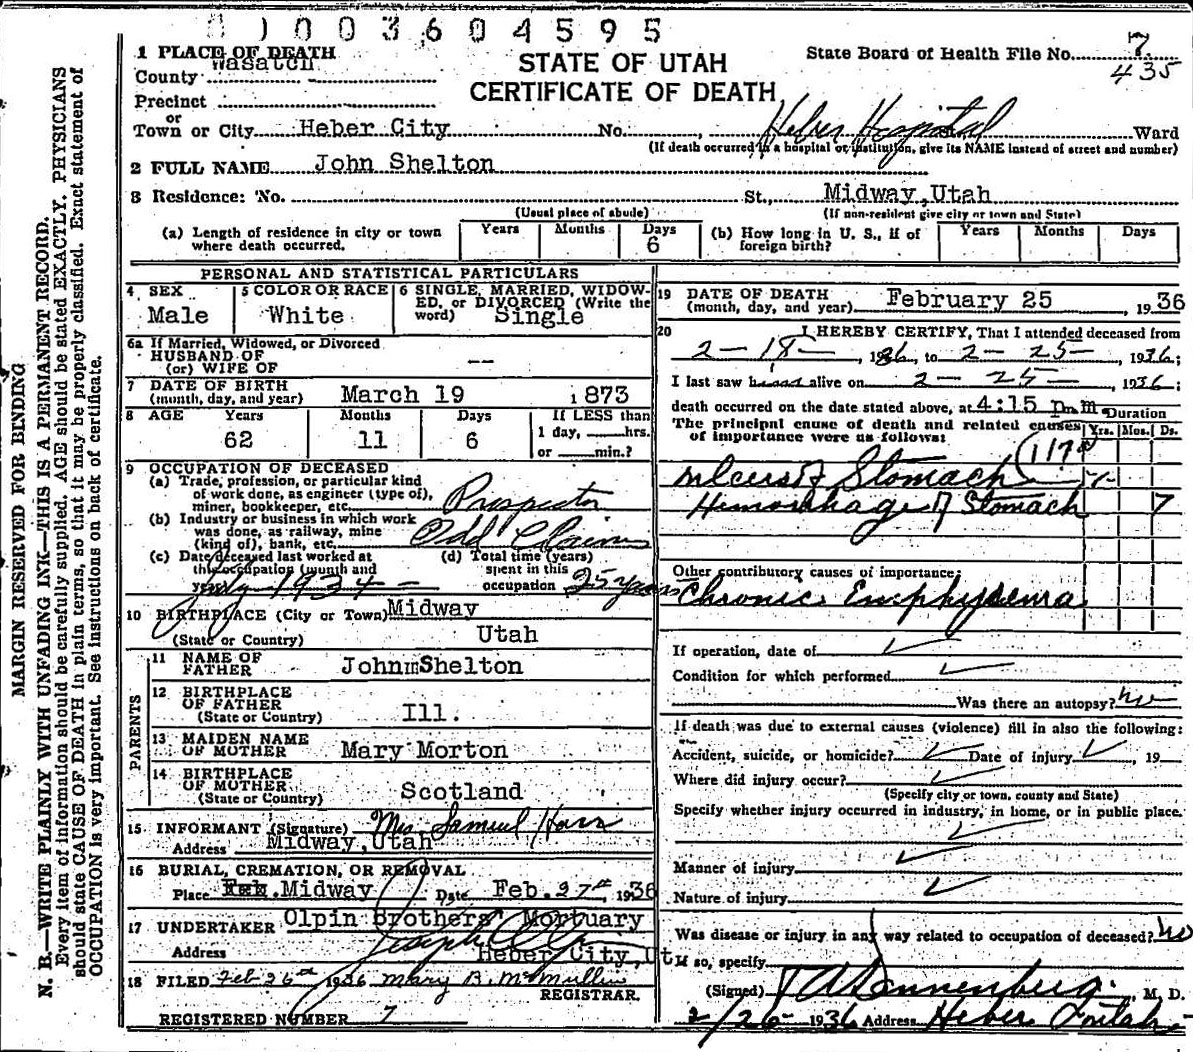 01003604595
1 PLACE OF DEATH
Wasatch
County
STATE OF UTAH
CERTIFICATE OF DEATH
State Board of Health File No. 7
435
Precinct
or
Town or City Heber City No. , Heber Hospital Ward
(If death occurred in a hospital or institution, give its NAME instead of street and number)
2 FULL NAME John Shelton
3 Residence: No. St., Midway, Utah
(Usual place of abode) (If non-resident give city or town and State)
(a) Length of residence in city or town where death occurred. Years Months Days 6
(b) How long in U. S., if of foreign birth? Years Months Days
PERSONAL AND STATISTICAL PARTICULARS
4 SEX Male
5 COLOR OR RACE White
6 SINGLE, MARRIED, WIDOWED, or DIVORCED (Write the word) Single
6a If Married, Widowed, or Divorced
HUSBAND OF
(or) WIFE OF --
7 DATE OF BIRTH
(month, day, and year) March 19 1873
8 AGE Years Months Days If LESS than
62 11 6 1 day, hrs.
or min.?
9 OCCUPATION OF DECEASED
(a) Trade, profession, or particular kind
of work done, as engineer (type of),
miner, bookkeeper, etc. Prospector
(b) Industry or business in which work
was done, as railway, mine
(kind of), bank, etc. Odd Claims
(c) Date deceased last worked at
this occupation (month and
year) July 1934
(d) Total time (years)
spent in this
occupation 25 years
10 BIRTHPLACE (City or Town) Midway
(State or Country) Utah
PARENTS
11 NAME OF
FATHER John Shelton
12 BIRTHPLACE
OF FATHER
(State or Country) Ill.
13 MAIDEN NAME
OF MOTHER Mary Morton
14 BIRTHPLACE
OF MOTHER
(State or Country) Scotland
15 INFORMANT (Signature) Mrs Samuel
Address Midway, Utah
16 BURIAL, CREMATION, OR REMOVAL
Place Midway Date Feb. 27th, 1936
17 UNDERTAKER Olpin Brothers Mortuary
Address Heber City, Ut
18 FILED Feb 26th 1936 Mary B. McMullin
REGISTRAR.
REGISTERED NUMBER 7
19 DATE OF DEATH
(month, day, and year) February 25, 1936
20 I HEREBY CERTIFY, That I attended deceased from
2-18-, 1936, to 2-25-, 1936;
I last saw alive on 2-25-, 1936;
death occurred on the date stated above, at 4:15 p.m. Duration
The principal cause of death and related causes Yrs. Mos. Ds.
of importance were as follows: 117a
Ulcers of Stomach
Hemorrhage of Stomach 7
Other contributory causes of importance:
Chronic Emphysema
If operation, date of
Condition for which performed
Was there an autopsy? no
If death was due to external causes (violence) fill in also the following:
Accident, suicide, or homicide? Date of injury , 19
Where did injury occur?
(Specify city or town, county and State)
Specify whether injury occurred in industry, in home, or in public place.
Manner of injury
Nature of injury
Was disease or injury in any way related to occupation of deceased? No
If so, specify
(Signed) Dannenberg, M. D.
2/26- 1936 Address Heber Utah
MARGIN RESERVED FOR BINDING
N. B.—WRITE PLAINLY WITH UNFADING INK—THIS IS A PERMANENT RECORD.
Every item of information should be carefully supplied. AGE should be stated EXACTLY. PHYSICIANS
should state CAUSE OF DEATH in plain terms, so that it may be properly classified. Exact statement of
OCCUPATION is very important. See instructions on back of certificate.